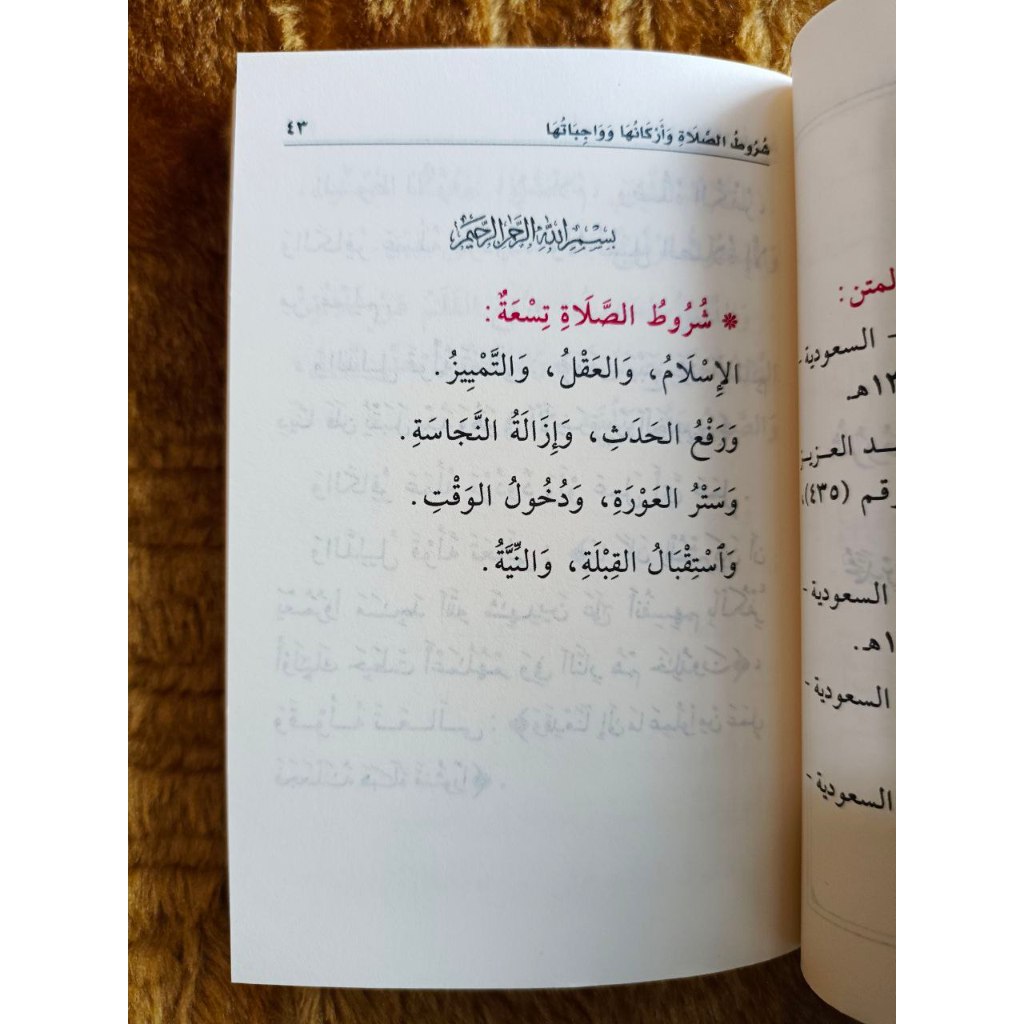 شُرُوطُ الصَّلَاةِ وَأَرْكَانُهَا وَوَاجِبَاتُهَا ٤٣
بِسْمِ اللهِ الرَّحْمٰنِ الرَّحِيمِ
* شُرُوطُ الصَّلَاةِ تِسْعَةٌ:
الإِسْلَامُ، وَالعَقْلُ، وَالتَّمْيِيزُ.
وَرَفْعُ الحَدَثِ، وَإِزَالَةُ النَّجَاسَةِ.
وَسَتْرُ العَوْرَةِ، وَدُخُولُ الوَقْتِ.
وَٱسْتِقْبَالُ القِبْلَةِ، وَالنِّيَّةُ.
لمتن:
- السعودية -
هـ.
العزيز
(٤٣٥)،
السعودية -
هـ.
السعودية -
السعودية -